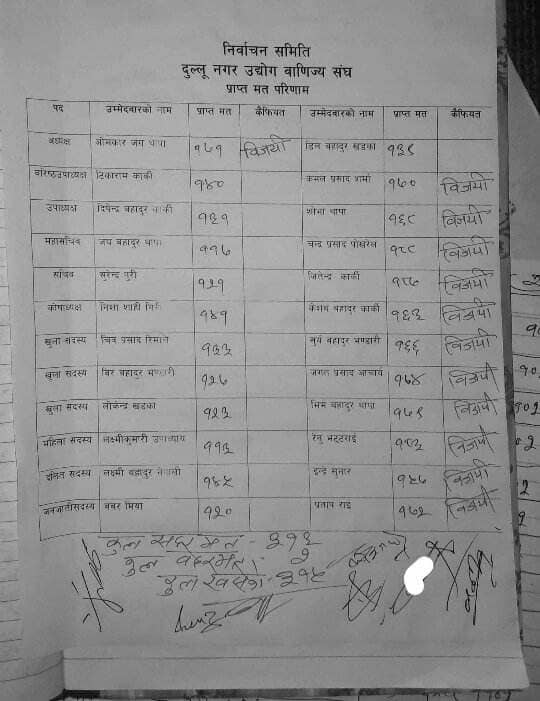 निर्वाचन समिति
दुल्लू नगर उद्योग वाणिज्य संघ
प्राप्त मत परिणाम
पद उम्मेदबारको नाम प्राप्त मत कैफियत उम्मेदबारको नाम प्राप्त मत कैफियत
अध्यक्ष ओमकार जंग थापा १५१ विजयी डिल बहादुर खडका १३९
बरिष्ठउपाध्यक्ष टिकाराम कार्की १४० कमल प्रसाद शर्मा १५० विजयी
उपाध्यक्ष दिपेन्द्र बहादुर कार्की १३१ शोभा थापा १६८ विजयी
महासचिव जय बहादुर थापा ११५ चन्द्र प्रसाद पोखरेल १८८ विजयी
सचिव सुरेन्द्र पुरी १२१ जितेन्द्र कार्की १८५ विजयी
कोषाध्यक्ष निशा शाही गिरी १४१ केशव बहादुर कार्की १६३ विजयी
खुला सदस्य चित्र प्रसाद रिमाल १३३ सुर्य बहादुर भण्डारी १६६ विजयी
खुला सदस्य बिर बहादुर भण्डारी १२५ जगत प्रसाद आचार्य १५४ विजयी
खुला सदस्य लोकेन्द्र खडका १२३ भिम बहादुर थापा १५९ विजयी
महिला सदस्य लक्ष्मीकुमारी उपाध्याय ११३ रेनु भट्टराई विजयी
दलित सदस्य लक्ष्मी बहादुर नेपाली १४५ इन्द्र सुनार १५५ विजयी
जनजातीसदस्य बबर मिया १२० प्रताप राई १५२ विजयी
कुल सदर मत - ३१३
कुल बदरमत - २
कुल खसेको - ३१५